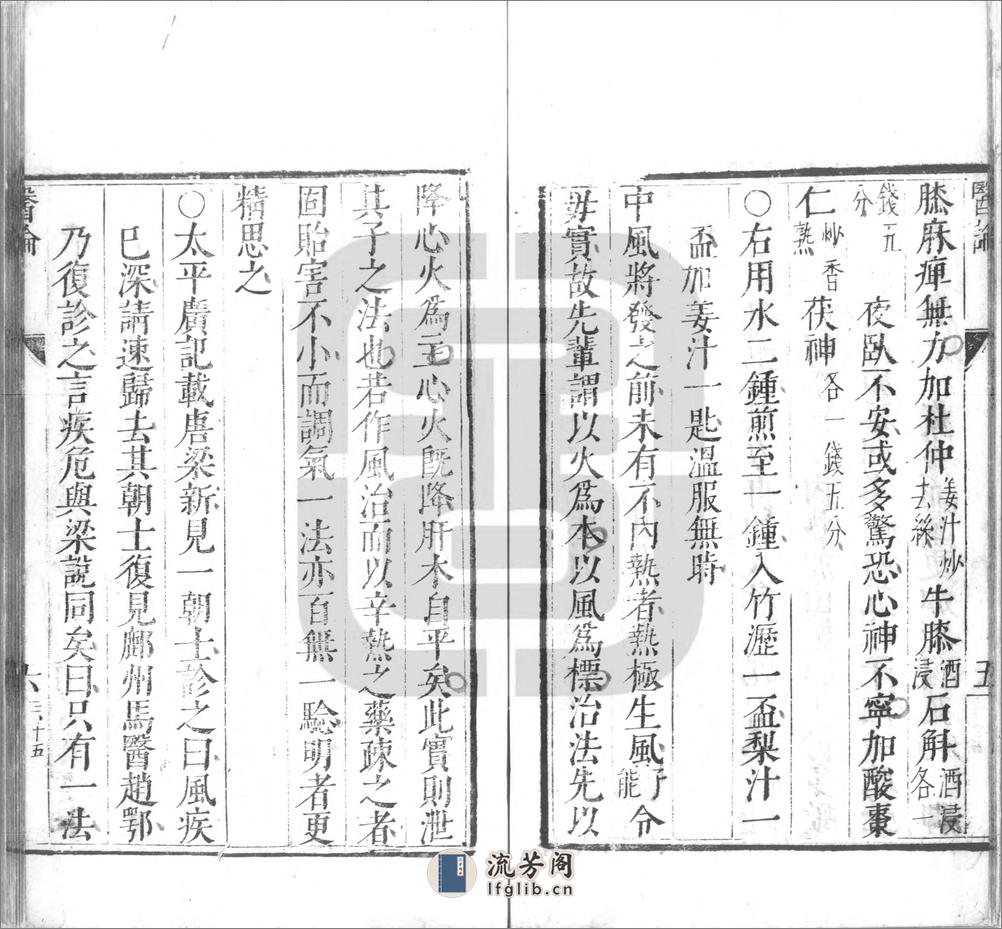 醫論
五
膝麻痺無力加杜仲姜汁炒去絲牛膝酒浸石斛酒浸各一
錢五分
夜臥不安或多驚恐心神不寧加酸棗
仁炒香熟茯神各一錢五分
○右用水二鍾煎至一鍾入竹瀝一盃梨汁一
盃加姜汁一匙溫服無時
中風將發之前未有不內熱者熱極生風能令
子母實故先輩謂以火爲本以風爲標治法先以
降心火爲主心火既降肝木自平矣此實則泄
其子之法也若作風治而以辛熱之藥疎之者
固貽害不小而調氣一法亦百無一驗明者更
精思之
○太平廣記載唐梁新見一朝士診之曰風疾
已深請速歸去其朝士復見鄜州馬醫趙鄂
乃復診之言疾危與梁說同矣曰只有一法
醫論
六
流芳阁
lfglib.cn